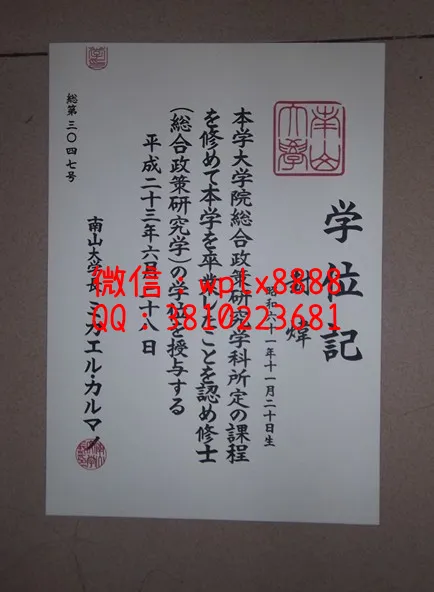 南山
大學
学位記
煒
昭和六十一年十一月二十日生
本学大学院総合政策研究学科所定の課程
を修めて本学を卒業したことを認め修士
(総合政策研究学)の学位を授与する
平成二十三年六月二十八日
南山大学長 ミカエル・カルマノ
総第三〇四七号
微信：wptx8888
QQ：3810223681